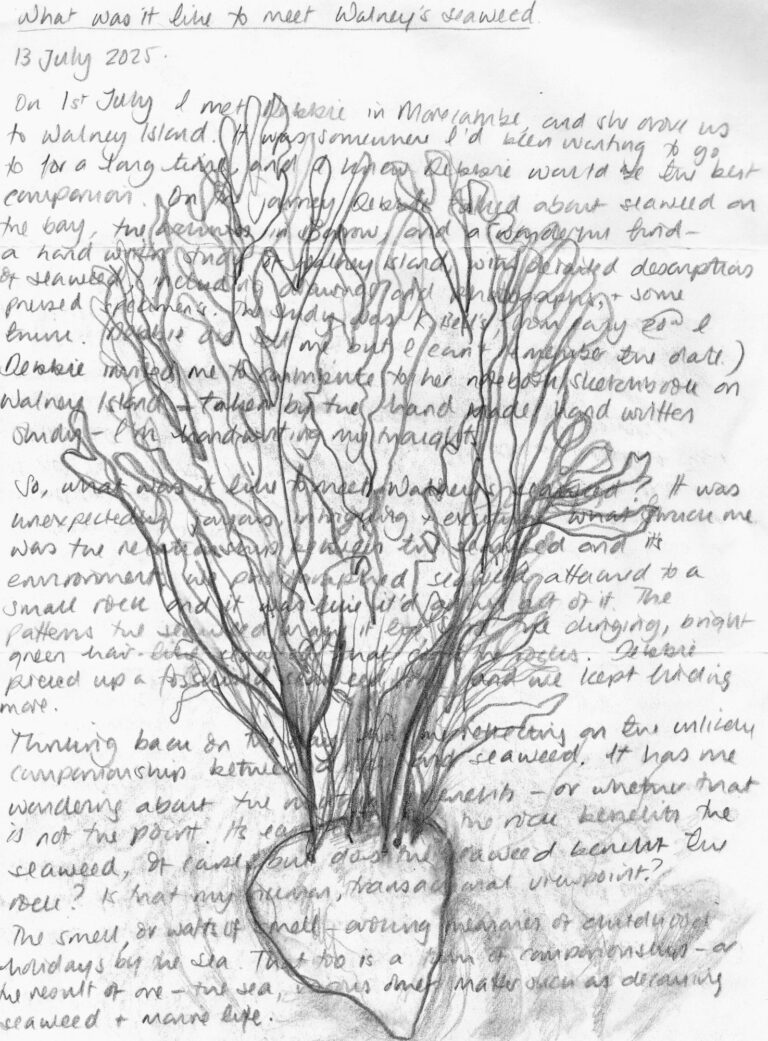 What was it like to meet Walney's seaweed.
13 July 2025.
On 1st July I met Debbie in Morecambe, and she drove us
to Walney Island. It was somewhere I'd been wanting to go
to for a long time, and I knew Debbie would be the best
companion. On the journey Debbie talked about seaweed on
the bay, the in Barrow, and a wonderful find -
a hand written study of Walney Island, with detailed descriptions
of seaweed, including drawings and photographs, + some
pressed specimens. The study was from early 20th C
Debbie did tell me but I can't remember the date.)
Debbie invited me to contribute to her notebook/sketchbook on
Walney Island - taken by the hand made/hand written
study - I'm handwriting my thoughts.
So, what was it like to meet Walney's seaweed? It was
unexpectedly joyous, intriguing + exciting. What struck me
was the relationship between the seaweed and its
environment. We photographed seaweed attached to a
small rock and it was like it'd grown out of it. The
patterns the seaweed made it the clinging, bright
green hair-like that the rocks. Debbie
picked up a fossilised and we kept finding
more.
Thinking back on the day reflecting on the unlikely
companionship between rock and seaweed. It has me
wondering about the benefits - or whether that
is not the point. Its the rock benefits the
seaweed, of course, but does the seaweed benefit the
rock? Is that my human, transactional viewpoint?
The smell, or wafts of smell - evoking memories of childhood
holidays by the sea. That too is a form of companionship - or
the result of one - the sea, other matter such as decaying
seaweed + marine life.